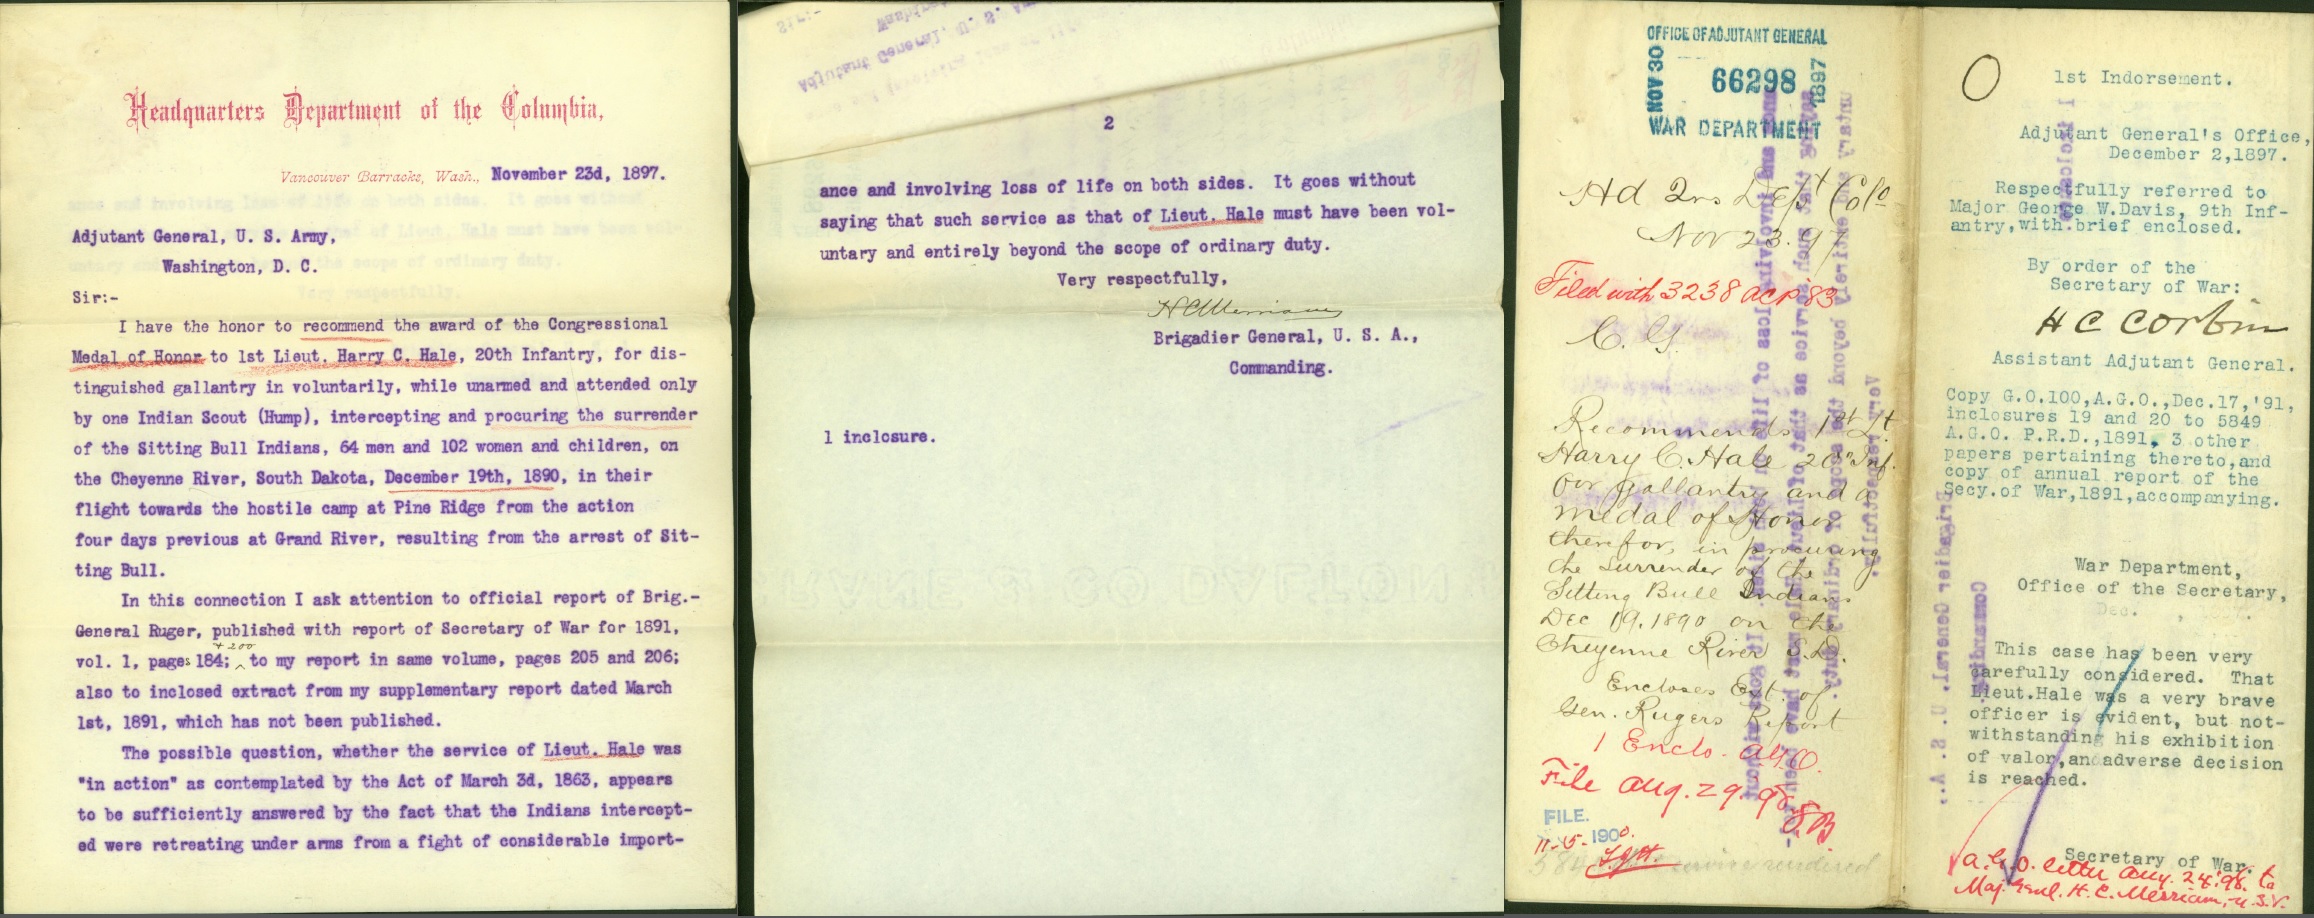 Headquarters Department of the Columbia,
Vancouver Barracks, Wash., November 23d, 1897.
Adjutant General, U. S. Army,
Washington, D. C.
Sir:-
I have the honor to recommend the award of the Congressional
Medal of Honor to 1st Lieut. Harry C. Hale, 20th Infantry, for dis-
tinguished gallantry in voluntarily, while unarmed and attended only
by one Indian Scout (Hump), intercepting and procuring the surrender
of the Sitting Bull Indians, 64 men and 102 women and children, on
the Cheyenne River, South Dakota, December 19th, 1890, in their
flight towards the hostile camp at Pine Ridge from the action
four days previous at Grand River, resulting from the arrest of Sit-
ting Bull.
In this connection I ask attention to official report of Brig.-
General Ruger, published with report of Secretary of War for 1891,
+ 200
vol. 1, pages 184; ^ to my report in same volume, pages 205 and 206;
also to inclosed extract from my supplementary report dated March
1st, 1891, which has not been published.
The possible question, whether the service of Lieut. Hale was
"in action" as contemplated by the Act of March 3d, 1863, appears
to be sufficiently answered by the fact that the Indians intercept-
ed were retreating under arms from a fight of considerable import-
2
ance and involving loss of life on both sides. It goes without
saying that such service as that of Lieut. Hale must have been vol-
untary and entirely beyond the scope of ordinary duty.
Very respectfully,
H C Merriam
Brigadier General, U. S. A.,
Commanding.
1 inclosure.
OFFICE OF ADJUTANT GENERAL
NOV 30 66298 1897
WAR DEPARTMENT
Hd Qrs Dept Colo
Nov 23. 97
Filed with 3238 ACP 83
C. G.
Recommends 1st Lt.
Harry C. Hale 20" Inf.
for gallantry and a
medal of Honor
therefor, in procuring
the surrender of the
Sitting Bull Indians
Dec 19. 1890 on the
Cheyenne River S.D.
Encloses Ext of
Gen. Rugers Report
1 Enclo. A.G.O.
File Aug. 29. 98
FILE.
11-15-1900.
service rendered
1st Indorsement.
Adjutant General's Office,
December 2,1897.
Respectfully referred to
Major George W.Davis, 9th Inf-
antry,with brief enclosed.
By order of the
Secretary of War:
H C Corbin
Assistant Adjutant General.
Copy G.O.100,A.G.O.,Dec.17,'91,
inclosures 19 and 20 to 5849
A.G.O. P.R.D.,1891, 3 other
papers pertaining thereto,and
copy of annual report of the
Secy.of War,1891,accompanying.
War Department,
Office of the Secretary,
Dec.
This case has been very
carefully considered. That
Lieut.Hale was a very brave
officer is evident, but not-
withstanding his exhibition
of valor,an adverse decision
is reached.
Secretary of War.
A.G.O. letter Aug. 24.'98. to
Maj. Genl. H. C. Merriam, U.S.V.